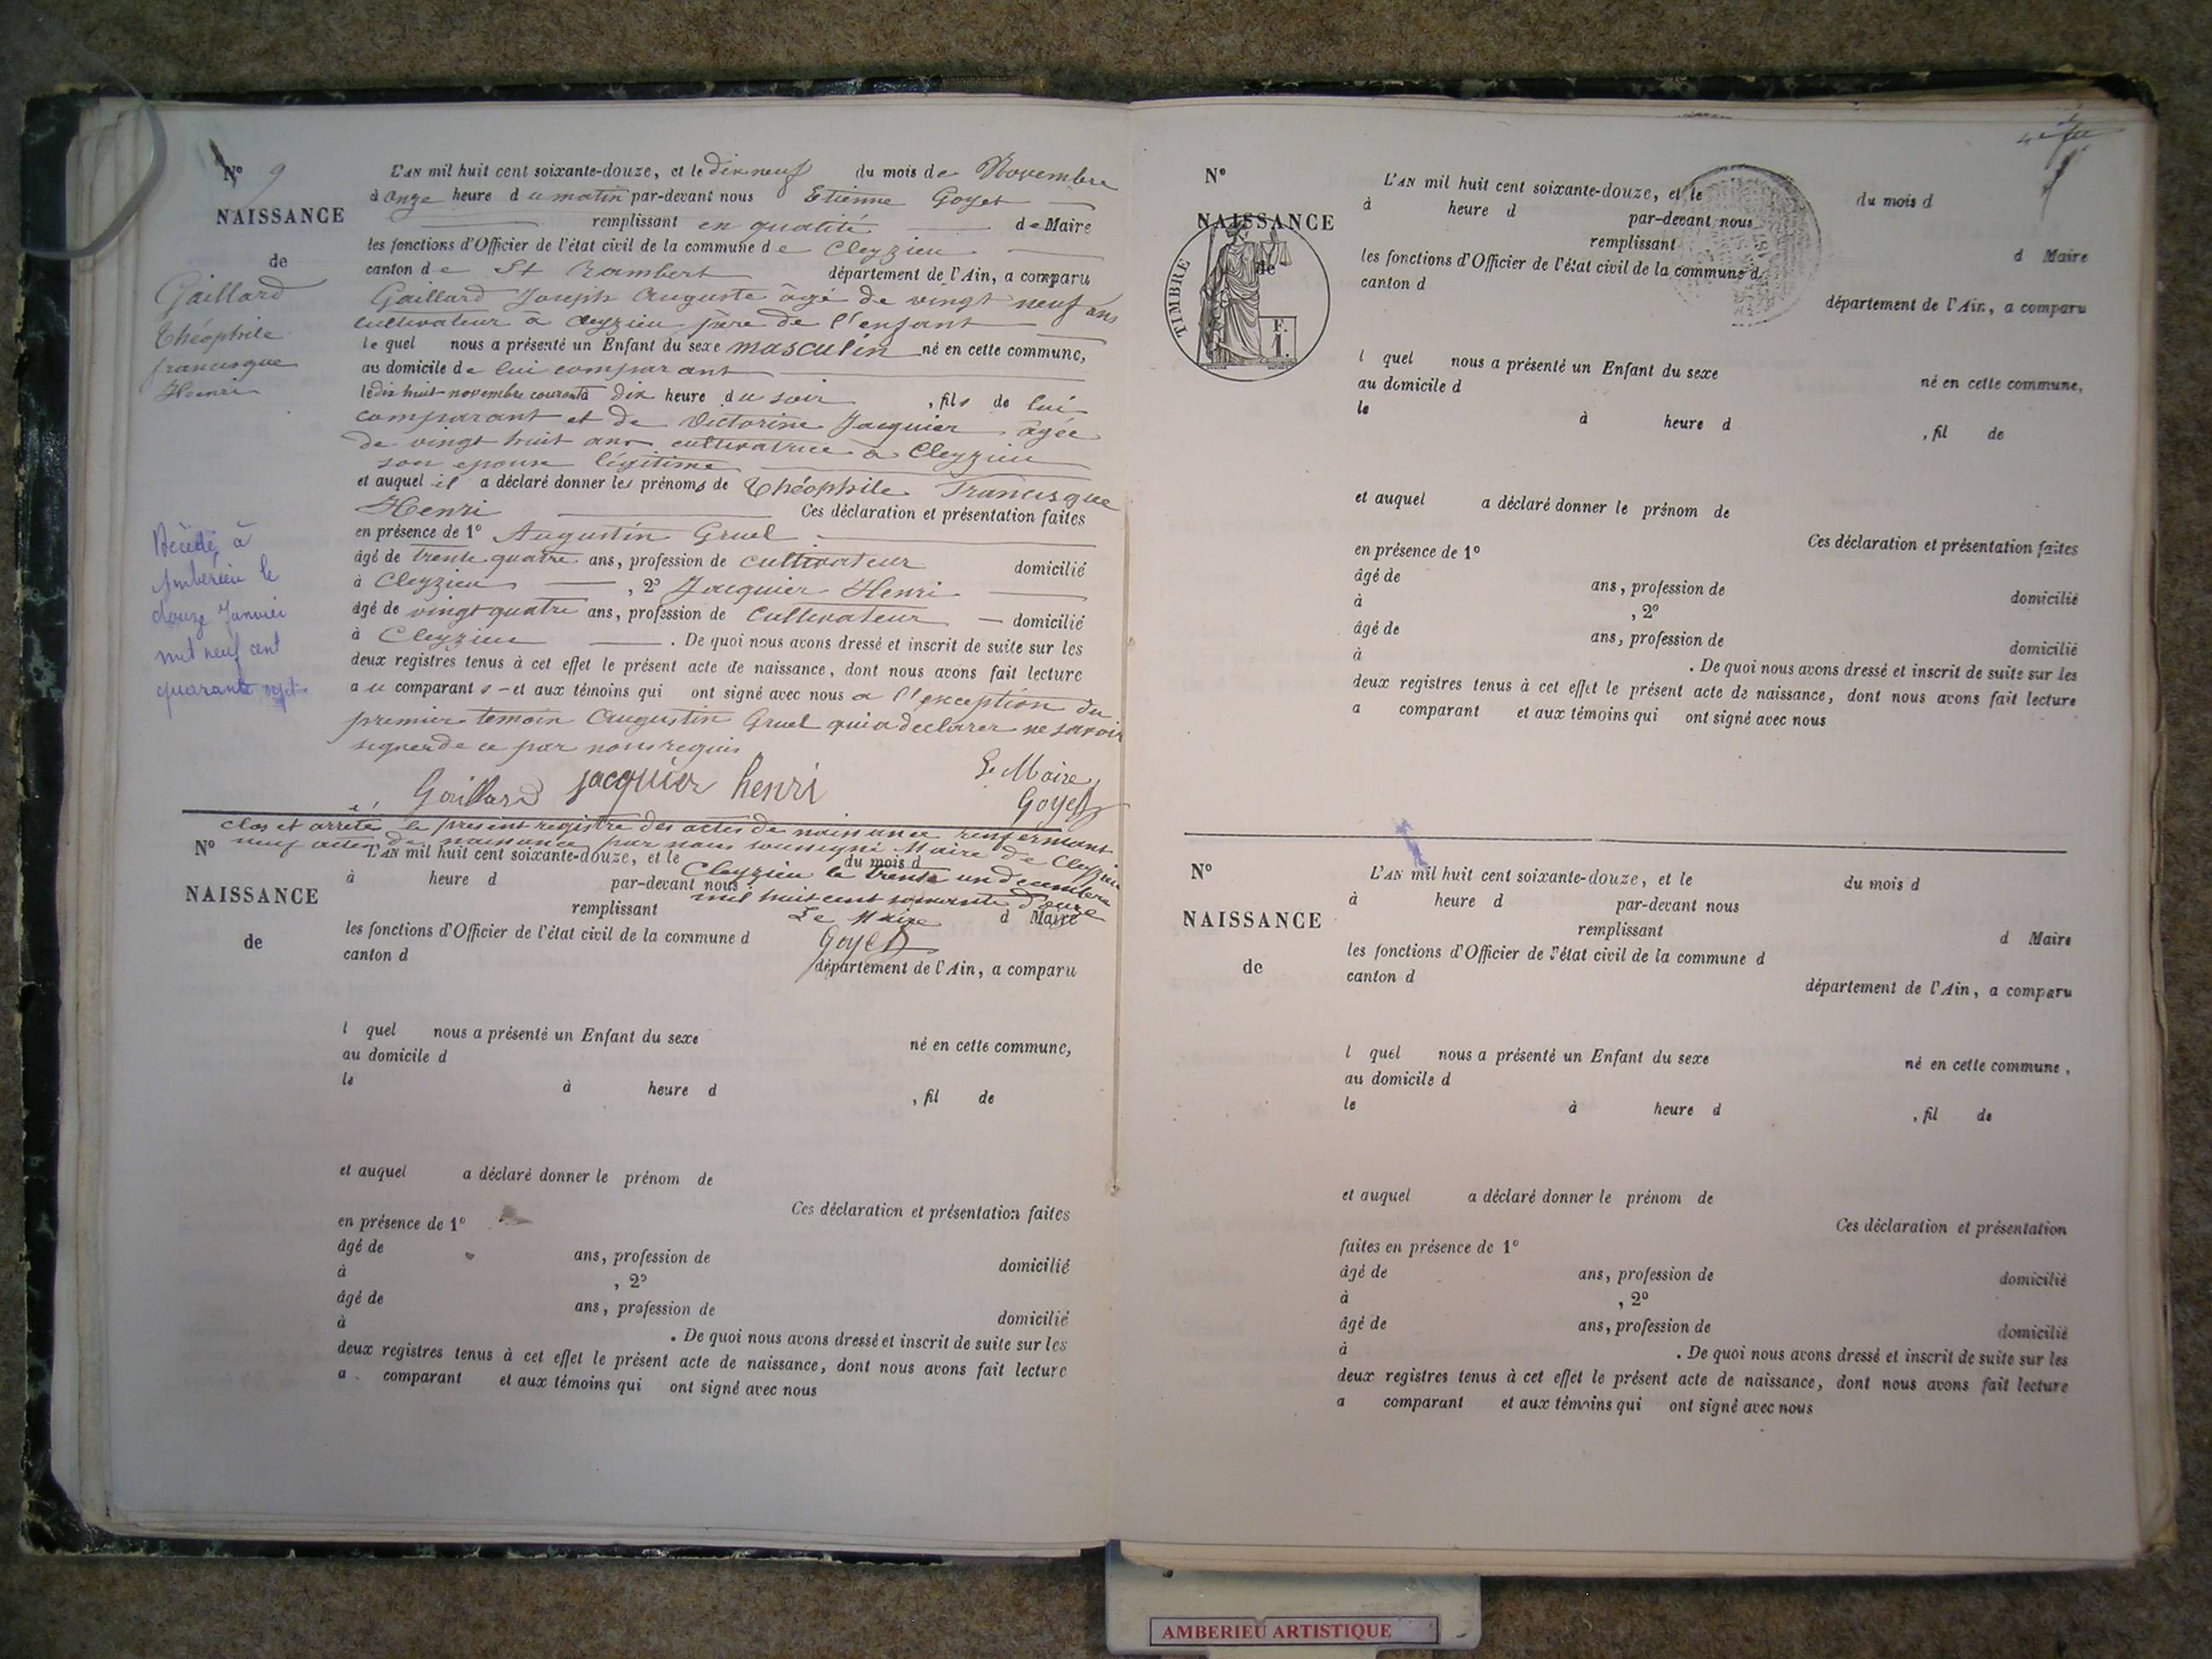 N° 9
NAISSANCE
de
Gaillard
Théophile
francisque
Henri
Décédé à
Amberieu le
douze Janvier
mil neuf cent
quarante sept
L'AN mil huit cent soixante-douze, et le dix neuf du mois de Novembre
à onze heure du matin par-devant nous Etienne Goyet
remplissant en qualité de Maire
les fonctions d'Officier de l'état civil de la commune de Cleyzieu
canton de St Rambert département de l'Ain, a comparu
Gaillard Joseph Auguste âgé de vingt neuf ans
cultivateur à Cleyzieu père de l'enfant
lequel nous a présenté un Enfant du sexe masculin né en cette commune,
au domicile de lui comparant
le dix huit novembre courant à dix heure du soir, fils de lui
comparant et de Victorine Jacquier âgée
de vingt huit ans cultivatrice à Cleyzieu
son epouse légitime
et auquel il a déclaré donner les prénoms de Théophile Francisque
Henri Ces déclaration et présentation faites
en présence de 1° Augustin Gruel
âgé de trente quatre ans, profession de cultivateur domicilié
à Cleyzieu, 2° Jacquier Henri
âgé de vingt quatre ans, profession de Cultivateur domicilié
à Cleyzieu. De quoi nous avons dressé et inscrit de suite sur les
deux registres tenus à cet effet le présent acte de naissance, dont nous avons fait lecture
au comparant s et aux témoins qui ont signé avec nous a l'exception du
premier temoin Augustin Gruel qui a declarer ne savoir
signer de ce par nous requis
Gaillard jacquier henri Le Maire
Goyet
Clos et arrêté le present registre des actes de naissance renfermant
neuf actes de naissance par nous soussigné Maire de Cleyzieu
Cleyzieu le trente un decembre
mil huit cent soixante Douze
Le Maire
Goyet
N°
NAISSANCE
de
L'AN mil huit cent soixante-douze, et le du mois d
à heure d par-devant nous
remplissant d Maire
les fonctions d'Officier de l'état civil de la commune d
canton d département de l'Ain, a comparu
l quel nous a présenté un Enfant du sexe né en cette commune,
au domicile d
le à heure d , fil de
et auquel a déclaré donner le prénom de
Ces déclaration et présentation faites
en présence de 1°
âgé de ans, profession de domicilié
à , 2°
âgé de ans, profession de domicilié
à . De quoi nous avons dressé et inscrit de suite sur les
deux registres tenus à cet effet le présent acte de naissance, dont nous avons fait lecture
a comparant et aux témoins qui ont signé avec nous
N°
NAISSANCE
de
TIMBRE
F.
1.
L'AN mil huit cent soixante-douze, et le du mois d
à heure d par-devant nous
remplissant d Maire
les fonctions d'Officier de l'état civil de la commune d
canton d département de l'Ain, a comparu
l quel nous a présenté un Enfant du sexe né en cette commune,
au domicile d
le à heure d , fil de
et auquel a déclaré donner le prénom de
Ces déclaration et présentation faites
en présence de 1°
âgé de ans, profession de domicilié
à , 2°
âgé de ans, profession de domicilié
à . De quoi nous avons dressé et inscrit de suite sur les
deux registres tenus à cet effet le présent acte de naissance, dont nous avons fait lecture
a comparant et aux témoins qui ont signé avec nous
N°
NAISSANCE
de
L'AN mil huit cent soixante-douze, et le du mois d
à heure d par-devant nous
remplissant d Maire
les fonctions d'Officier de l'état civil de la commune d
canton d département de l'Ain, a comparu
l quel nous a présenté un Enfant du sexe né en cette commune,
au domicile d
le à heure d , fil de
et auquel a déclaré donner le prénom de
Ces déclaration et présentation
faites en présence de 1°
âgé de ans, profession de domicilié
à , 2°
âgé de ans, profession de domicilié
à . De quoi nous avons dressé et inscrit de suite sur les
deux registres tenus à cet effet le présent acte de naissance, dont nous avons fait lecture
a comparant et aux témoins qui ont signé avec nous
AMBERIEU ARTISTIQUE